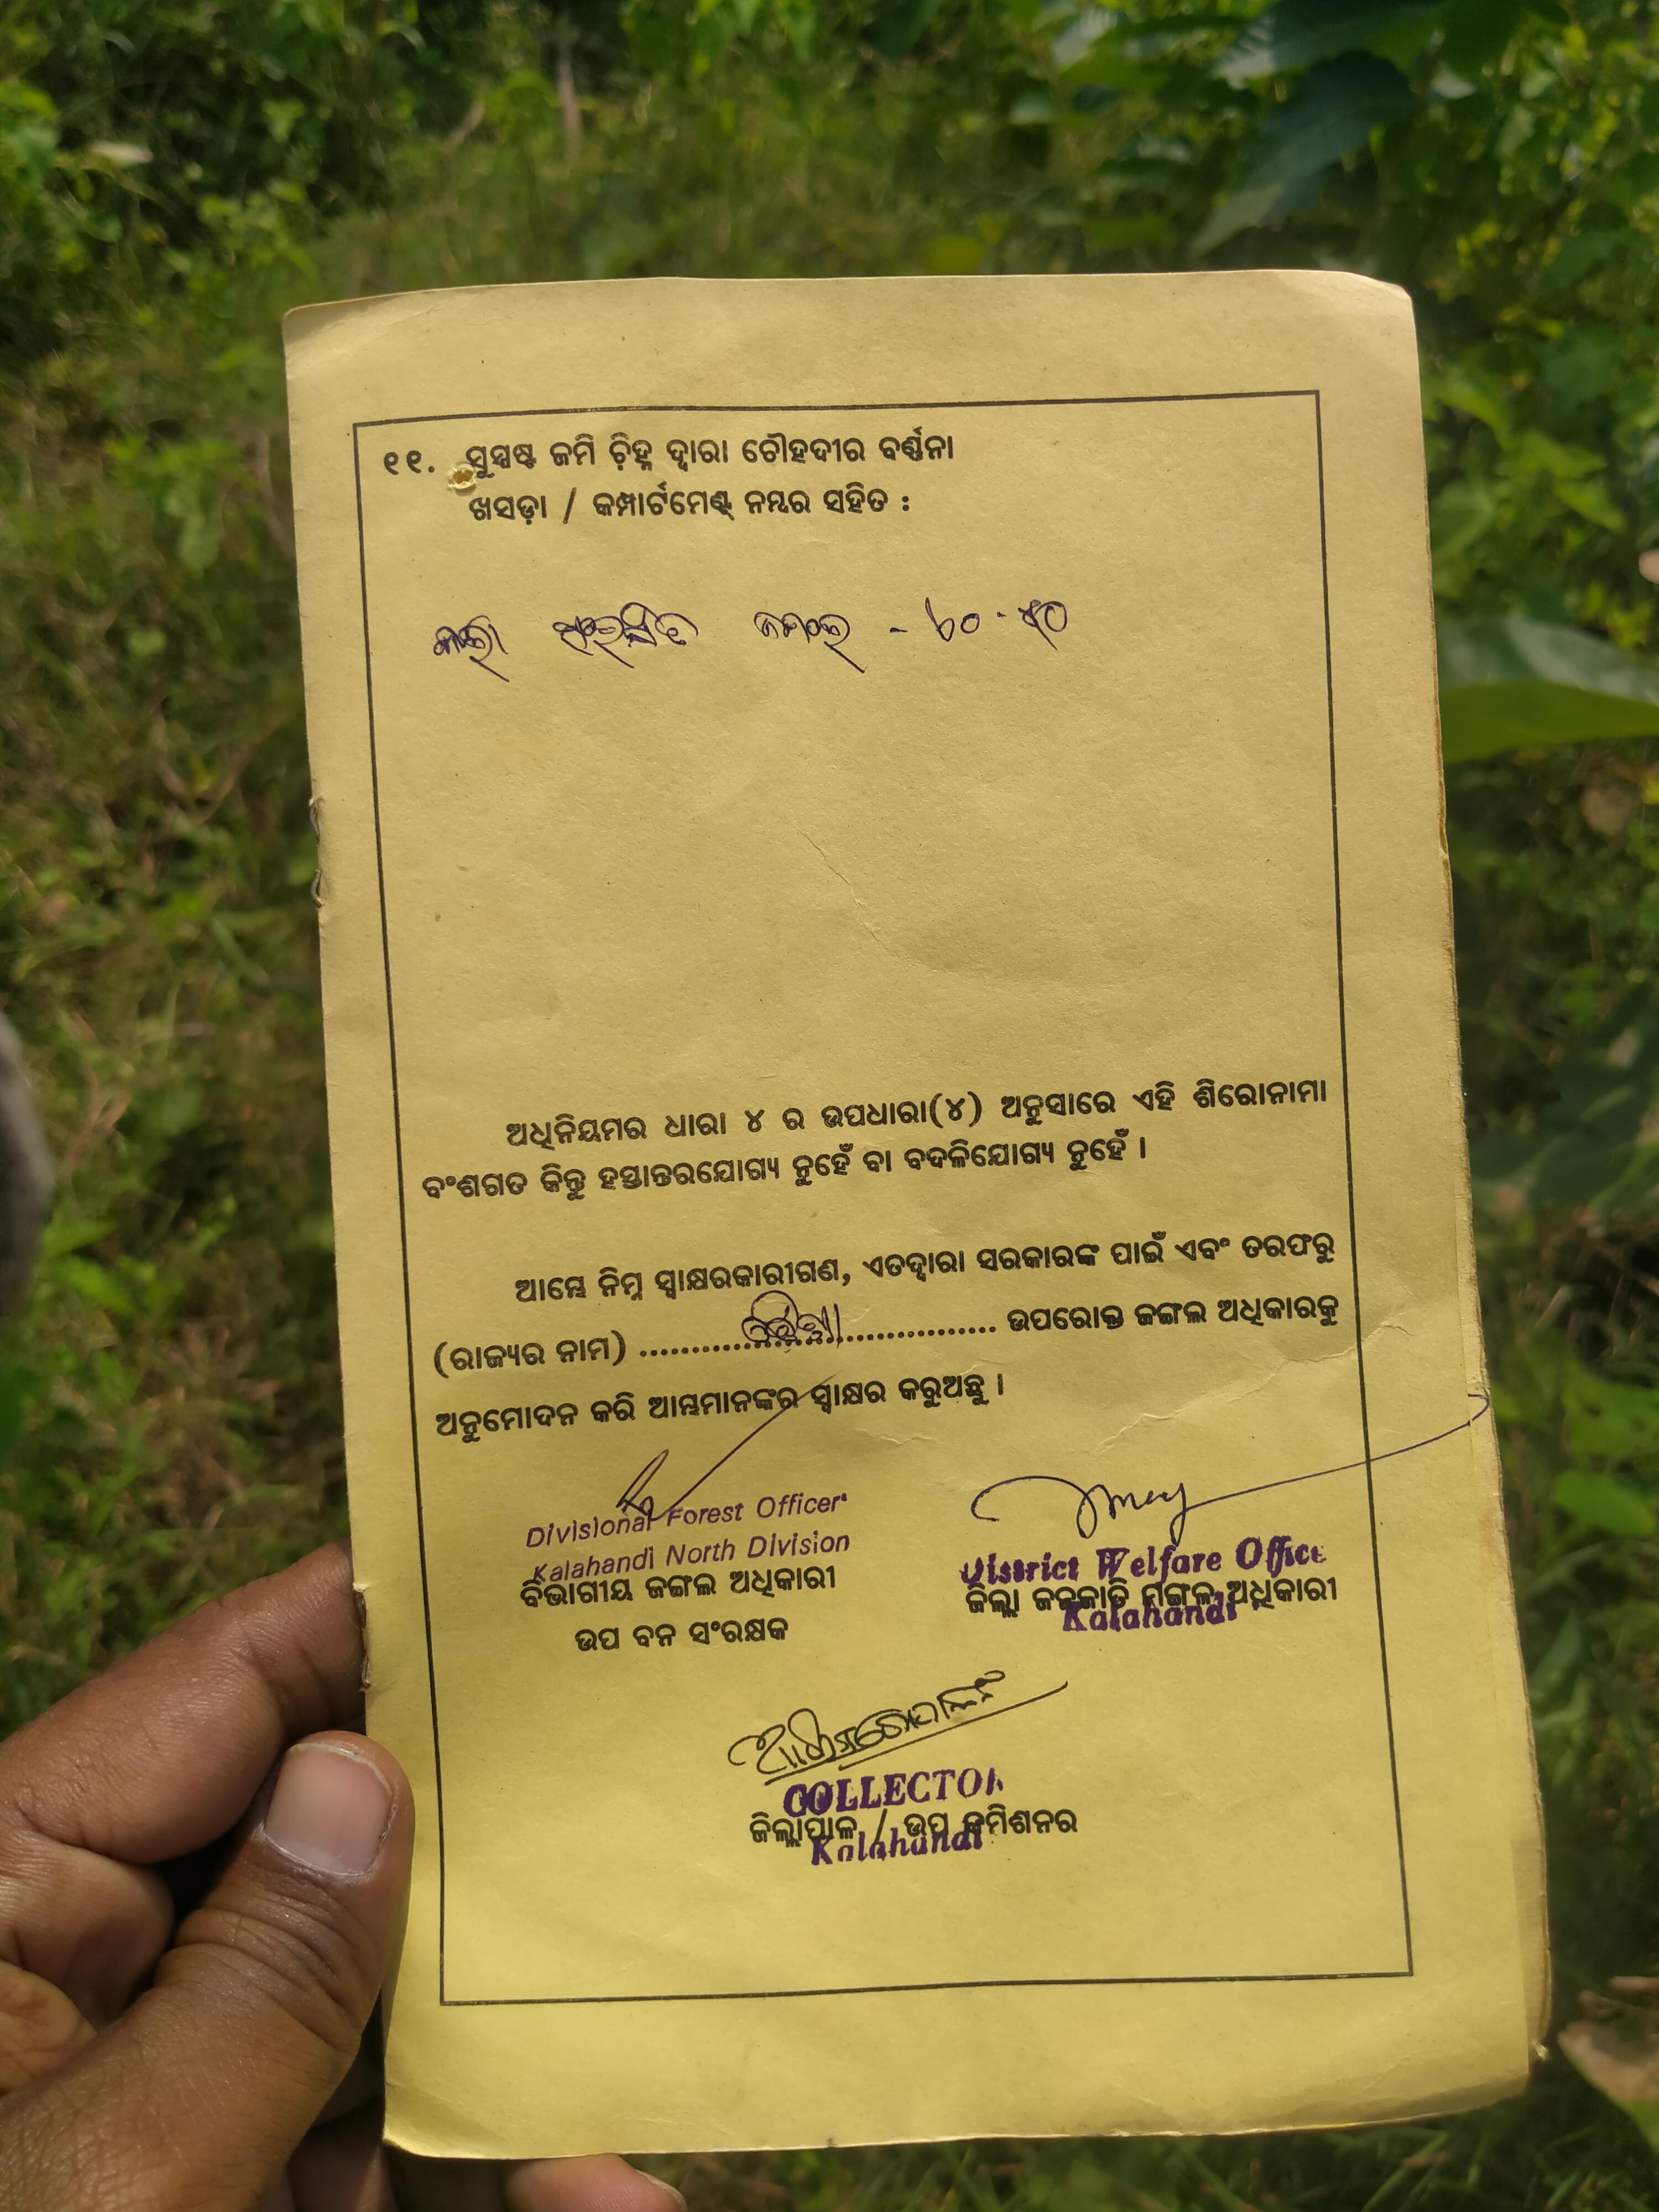 ୧୧. ସୁସ୍ପଷ୍ଟ ଜମି ଚ଼ିହ୍ନ ଦ୍ୱାରା ଚୌହଦୀର ବର୍ଣ୍ଣନା
ଖସଡ଼ା / କମ୍ପାର୍ଟମେଣ୍ଟ୍ ନମ୍ବର ସହିତ :
ଜଙ୍ଗଲ - ୪୦ - ୫୦
ଅଧିନିୟମର ଧାରା ୪ ର ଉପଧାରା(୪) ଅନୁସାରେ ଏହି ଶିରୋନାମା
ବଂଶଗତ କିନ୍ତୁ ହସ୍ତାନ୍ତରଯୋଗ୍ୟ ନୁହେଁ ବା ବଦଳିଯୋଗ୍ୟ ନୁହେଁ ।
ଆମ୍ଭେ ନିମ୍ନ ସ୍ୱାକ୍ଷରକାରୀଗଣ, ଏତଦ୍ୱାରା ସରକାରଙ୍କ ପାଇଁ ଏବଂ ତରଫରୁ
(ରାଜ୍ୟର ନାମ) ଓଡ଼ିଶା ଉପରୋକ୍ତ ଜଙ୍ଗଲ ଅଧିକାରକୁ
ଅନୁମୋଦନ କରି ଆମ୍ଭମାନଙ୍କର ସ୍ୱାକ୍ଷର କରୁଅଛୁ ।
Divisional Forest Officer
Kalahandi North Division
ବିଭାଗୀୟ ଜଙ୍ଗଲ ଅଧିକାରୀ
ଉପ ବନ ସଂରକ୍ଷକ
District Welfare Office
ଜିଲ୍ଲା ଜନଜାତି ମଙ୍ଗଳ ଅଧିକାରୀ
Kalahandi
COLLECTOR
ଜିଲ୍ଲାପାଳ / ଉପ କମିଶନର
Kalahandi